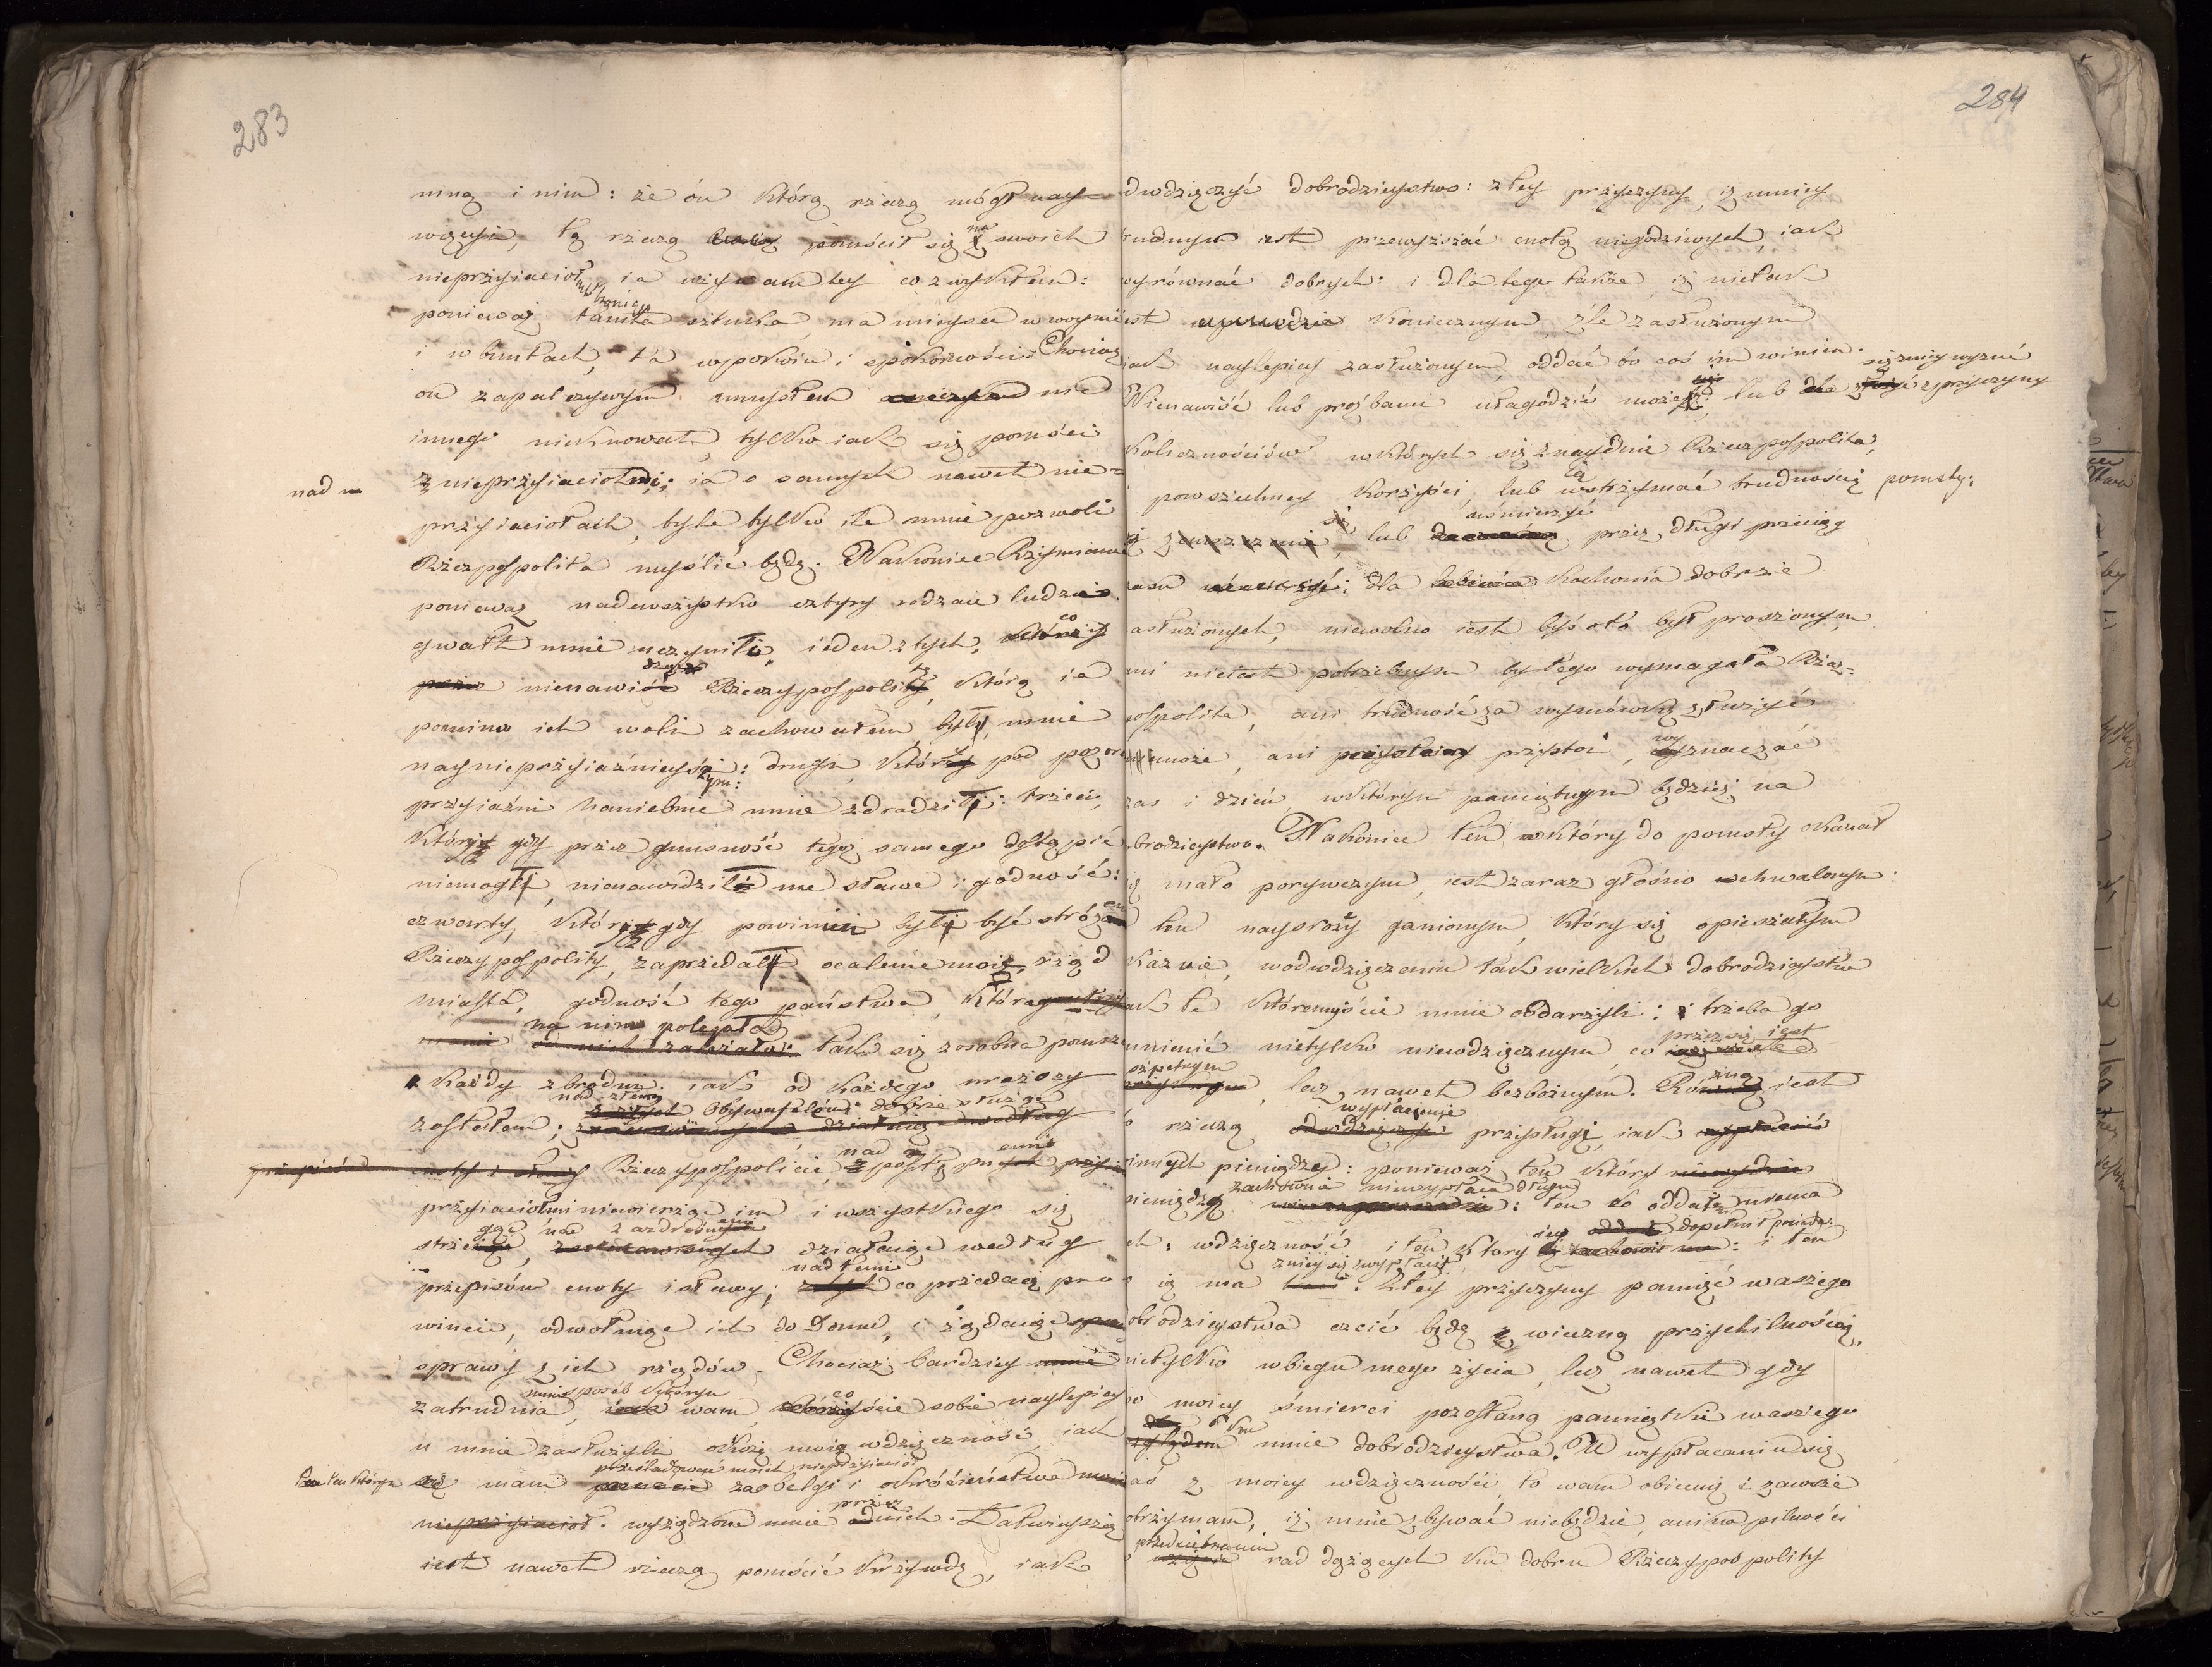 283
mną i nim: że ón którą rzeczą mógł nay-
więcej, tą rzeczą pomścił się na swoich
nieprzyjaciołach, ia używam tey co zwykłem:
ponieważ tamta sztuka ma mieysce w woynie
i w buntach, ta w pokoiu i spokoyności. Chociaż
on zapalczywym umysłem nic
innego nieknował, tylko iak się pomścić
nad nieprzyiaciołmi; ia o samych nawet nie-
przyiaciołach, byle tylko ile mnie pozwoli
Rzeczpospolita myślić będę. Nakoniec Rzymianie
ponieważ nadewszystko cztery rodzaie ludzi
gwałt mnie uczyniło, ieden z tych, co
nienawiść Rzeczypospolity, którą ia
pomimo ich woli zachowałem, był mnie
naynieprzyiaźnieyszym: drugi, który pod pozorem
przyiaźni haniebnie mnie zdradził: trzeci,
który gdy przez gnusność tegoż samego dostąpić
niemógł, nienawidził me sławę i godność:
czwarty, który gdy powinien był być stróżem
Rzeczypospolity, zaprzedał ocalenie moie, rząd
miasta, godność tego państwa, która
na nim polegała. tak się zosobna pomszczę
każdy zbrodni. iak od każdego urażony
zostałem; nad złemi Obywatelami dobrze służąc
Rzeczypospolicie, nad podstępnemi
przyiaciołmi niewierząc im i wszystkiego się
strzegąc, nad zazdrosnemi działaiąc według
przepisów cnoty i sławy; nad temi co przedaią pro-
wincie, odwołuiąc ich do Domu, i żądaiąc
sprawy z ich rządów. Chociaż bardziey
zatrudnia mnie sposób którym wam, coście sobie naylepiey
u mnie zasłużyli okażę moią wdzięczność, iak
ten którym mam prześladować moich nieprzyiaciół za obelgi i okrócieństwa
wyrządzone mnie przez nich. Łatwieyszą
iest nawet rzeczą pomścić krzywdę, iak
284
odwdzięczyć dobrodzieystwo: z tey przyczyny, iż mniey
trudnym iest przewyższać cnotą niegodziwych, iak
wyrównać dobrych: i dla tego także, iż nietak
iest koniecznym źle zasłużonym
iak naylepiey zasłużonym, oddać bo coś im winien.
Nienawiść lub prośbami ułagodzić możesz; lub z przyczyny
okoliczności w których się znayduie Rzeczpospolita,
i powszechney korzyści, lub ią wstrzymać trudnością pomsty:
lub uśmierzyć przez długi przeciąg
czasu; dla kochania dobrze
zasłużonych, niewolno iest być oto był proszonym,
ani nieiest potrzebnym by tego wymagała Rzecz-
pospolita, ani trudność za wymówkę służyć
niemoże, ani przystoi, wyznaczać
czas i dzień, wktórym pamiętnym będziesz na
dobrodzieystwo. Nakoniec ten który do pomsty okazał
się mało porywczym, iest zaraz głośno uchwalonym:
ten naysrożey ganionym, który się opieszałym
okazuie, w odwdzięczaniu tak wielkich dobrodzieystw
iak te któremiście mnie obdarzyli: i trzeba go
mienić nietylko niewdzięcznym, co przez się iest
szpetnym, lecz nawet bezbożnym. Różną iest
to rzeczą wypłacenie przysługi, iak
innych pieniędzy: ponieważ ten który
pieniądze zachowuie niewypłaca długu: ten co oddał niema
ich; wdzięczność i ten który: i ten
co ią ma z niey się wypłacił. Z tey przyczyny pamięć waszego
dobrodzieystwa czcić będę wieczną przychilnością,
nietylko wbiegu mego życia, lecz nawet gdy
po moiey śmierci pozostaną pamiątki waszego
ku mnie dobrodzieystwa. W wypłacaniu się
zaś z moiey wdzięczności, to wam obiecuię i zawsze
dotrzymam, iż mnie zbywać niebędzie, ani na pilności
przedsiębraniu rad dążących ku dobru Rzeczypospolity